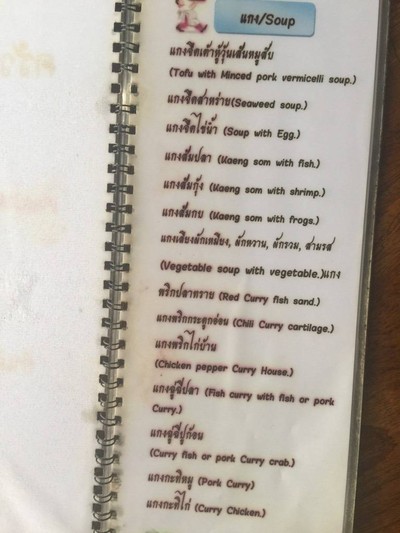 แกง/Soup
แกงจืดเต้าหู้วุ้นเส้นหมูสับ
(Tofu with Minced pork vermicelli soup.)
แกงจืดสาหร่าย(Seaweed soup.)
แกงจืดไข่น้ำ (Soup with Egg.)
แกงส้มปลา (Kaeng som with fish.)
แกงส้มกุ้ง (Kaeng som with shrimp.)
แกงส้มกบ (Kaeng som with frogs.)
แกงเลียงผักเหมียง, ผักหวาน, ผักรวม, สามรส
(Vegetable soup with vegetable.)แกง
พริกปลาทราย (Red Curry fish sand.)
แกงพริกกระดูกอ่อน (Chili Curry cartilage.)
แกงพริกไก่บ้าน
(Chicken pepper Curry House.)
แกงฉู่ฉี่ปลา (Fish curry with fish or pork
Curry.)
แกงฉู่ฉี่ปูก้อน
(Curry fish or pork Curry crab.)
แกงกะทิหมู (Pork Curry)
แกงกะทิไก่ (Curry Chicken.)